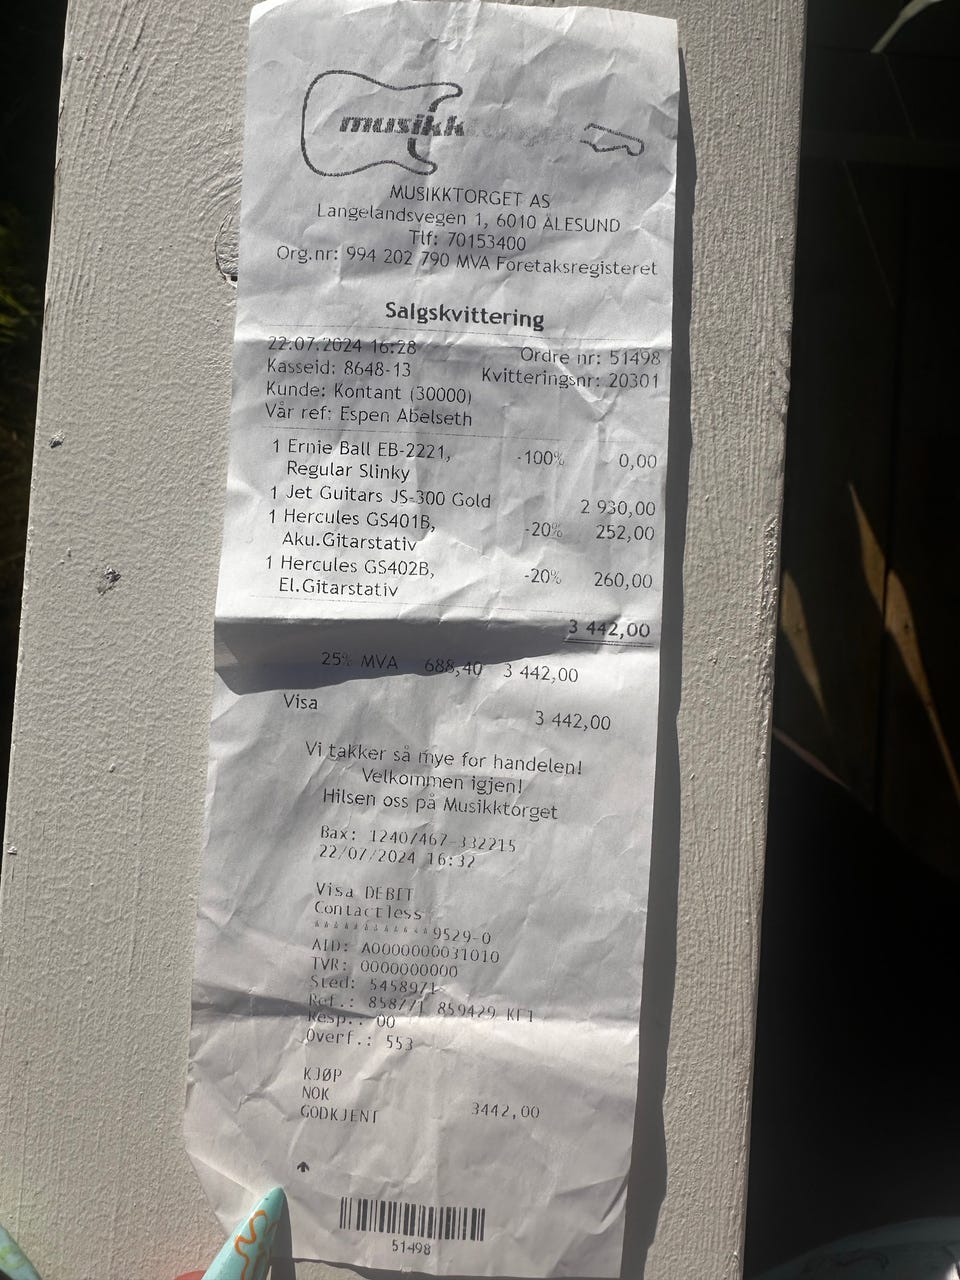 musikk
MUSIKKTORGET AS
Langelandsvegen 1, 6010 ÅLESUND
Tlf: 70153400
Org.nr: 994 202 790 MVA Foretaksregisteret
Salgskvittering
22.07.2024 16:28 Ordre nr: 51498
Kasseid: 8648-13 Kvitteringsnr: 20301
Kunde: Kontant (30000)
Vår ref: Espen Abelseth
1 Ernie Ball EB-2221, -100% 0,00
Regular Slinky
1 Jet Guitars JS-300 Gold 2 930,00
1 Hercules GS401B, -20% 252,00
Aku.Gitarstativ
1 Hercules GS402B, -20% 260,00
El.Gitarstativ
3 442,00
25% MVA 688,40 3 442,00
Visa 3 442,00
Vi takker så mye for handelen!
Velkommen igjen!
Hilsen oss på Musikktorget
Bax: 1240/467-332215
22/07/2024 16:32
Visa DEBIT
Contactless
************9529-0
AID: A0000000031010
TVR: 0000000000
Sted: 5458971
Ref.: 858771 859429 KC1
Resp.: 00
Overf.: 553
KJØP
NOK 3442,00
GODKJENT
51498